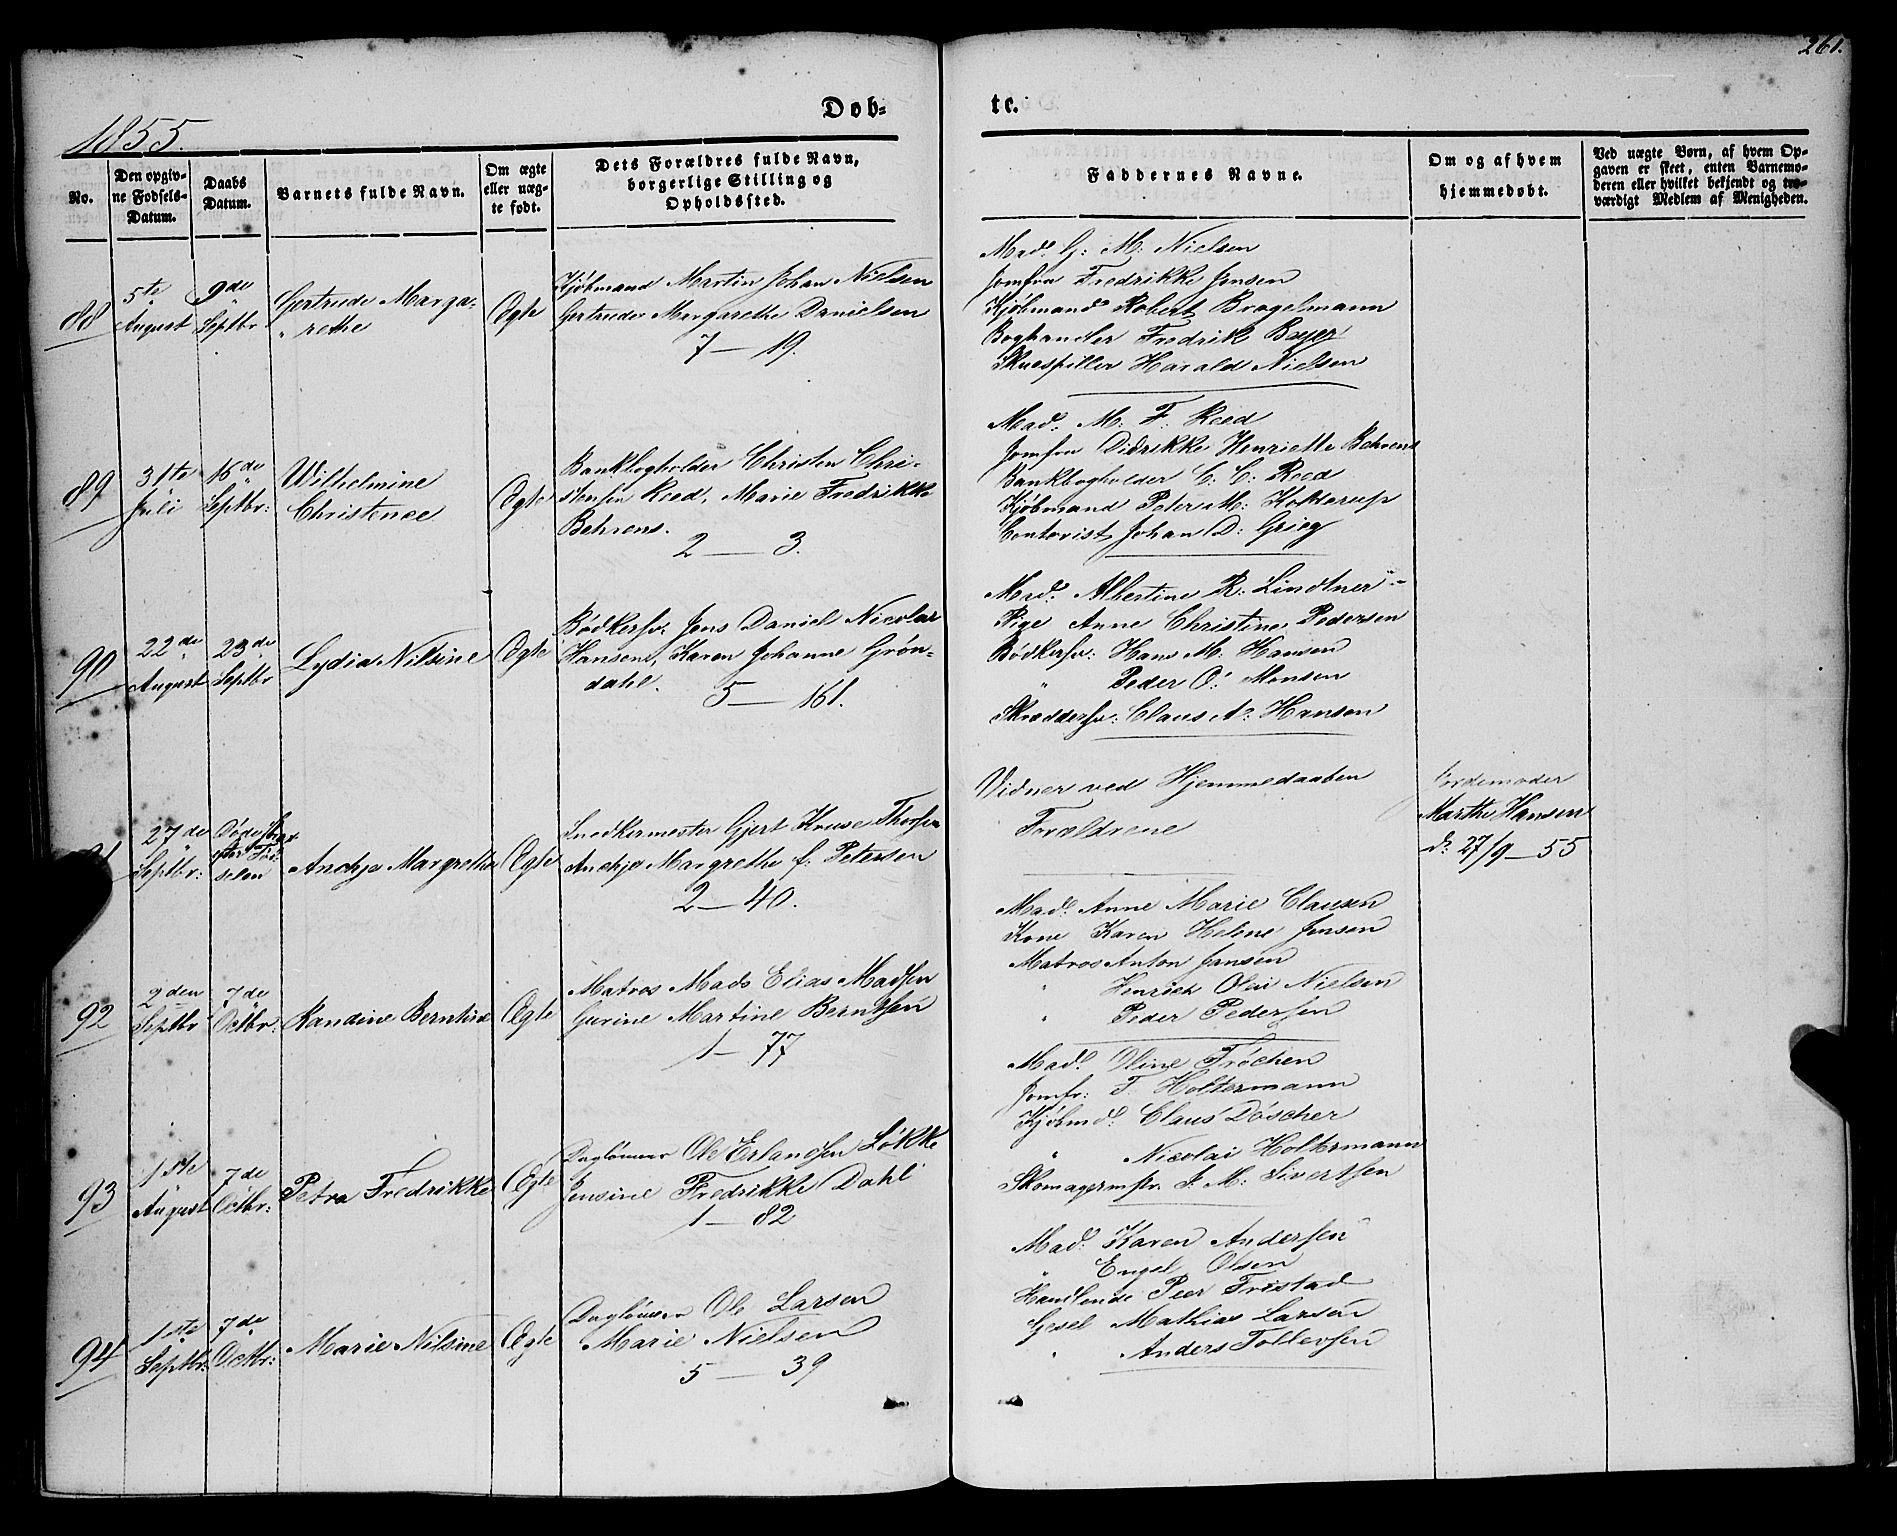 261.
Døb-
te.
1855.
No.
Den opgiv-
ne Fødsels-
Datum.
Daabs
Datum.
Barnets fulde Navn.
Om ægte
eller uæg-
te født.
Dets Forældres fulde Navn,
borgerlige Stilling og
Opholdssted.
Faddernes Navne.
Om og af hvem
hjemmedøbt.
Ved uægte Børn, af hvem Op-
gaven er skeet, enten Barnemo-
deren eller hvilket bekjendt og tro-
værdigt Medlem af Menigheden.
88
5te
August
9de
Septbr
Gertrude Marga-
rethe
Ægte
Kjøbmand Martin Johan Nielsen
Gertrude Margarethe Danielsen
7 — 19.
Mad. G. M. Nielsen
Jomfru Fredrikke Jensen
Kjøbmand Robert Bragelmann
Boghandler Fredrik Beyer
Skuespiller Harald Nielsen
89
31te
Juli
16de
Septbr:
Wilhelmine
Christence
Ægte
Bankbogholder Christen Chri-
stensen Reed, Marie Fredrikke
Behrens.
2 — 3.
Mad. M. F. Reed
Jomfru Didrikke Henriette Behrens
Bankbogholder C. C. Reed
Kjøbmand Peter M: Kolderup
Contorist Johan D: Grieg
90
22de
August
23de
Septbr
Lydia Nilsine
Ægte
Bødkersv: Jens Daniel Nicolai
Hansen, Karen Johanne Grøn-
dahl.
5 — 161.
Mad. Albertine R: Lindtner
Pige Anne Christine Pedersen
Bødkersv: Hans M: Hansen
" Peder O: Monsen
Skræddersv: Claus A: Hansen
27de
Septbr:
Døde strax
efter Fød-
selen
Anchje Margrethe
Ægte
Snedkermester Gjert Kruse Thorsen
Anchje Margrethe f: Petersen
2 — 40.
Vidner ved Hjemmedaaben
Forældrene
Jordemoder
Marthe Hansen
d: 27/9 — 55
92
2den
Septbr
7de
Octbr:
Randine Berntine
Ægte
Matros Mads Elias Madsen
Gurine Martine Berntsen
1 — 77
Mad. Anne Marie Clausen
Kone Karen Helene Jensen
Matros Anton Jansen
" Henrick Olai Nielsen
" Peder Pedersen
93
1ste
August
7de
Octbr:
Petra Fredrikke
Ægte
Daglønner Ole Erlandsen Løkke
Jensine Fredrikke Dahl
1 — 82
Mad. Oline Frøchen
Jomfr: F. Holtermann
Kjøbmd: Claus Døscher
" Nicolai Holtermann
Skomagermstr. J. M. Sivertsen
94
1ste
Septbr:
7de
Octbr:
Marie Nilsine
Ægte
Daglønner Ole Larsen
Marie Nielsen
5 — 39
Mad. Karen Andersen
" Engel Olsen
Handlende Peer Fristad
Gesel Mathias Larsen
" Anders Tollevsen